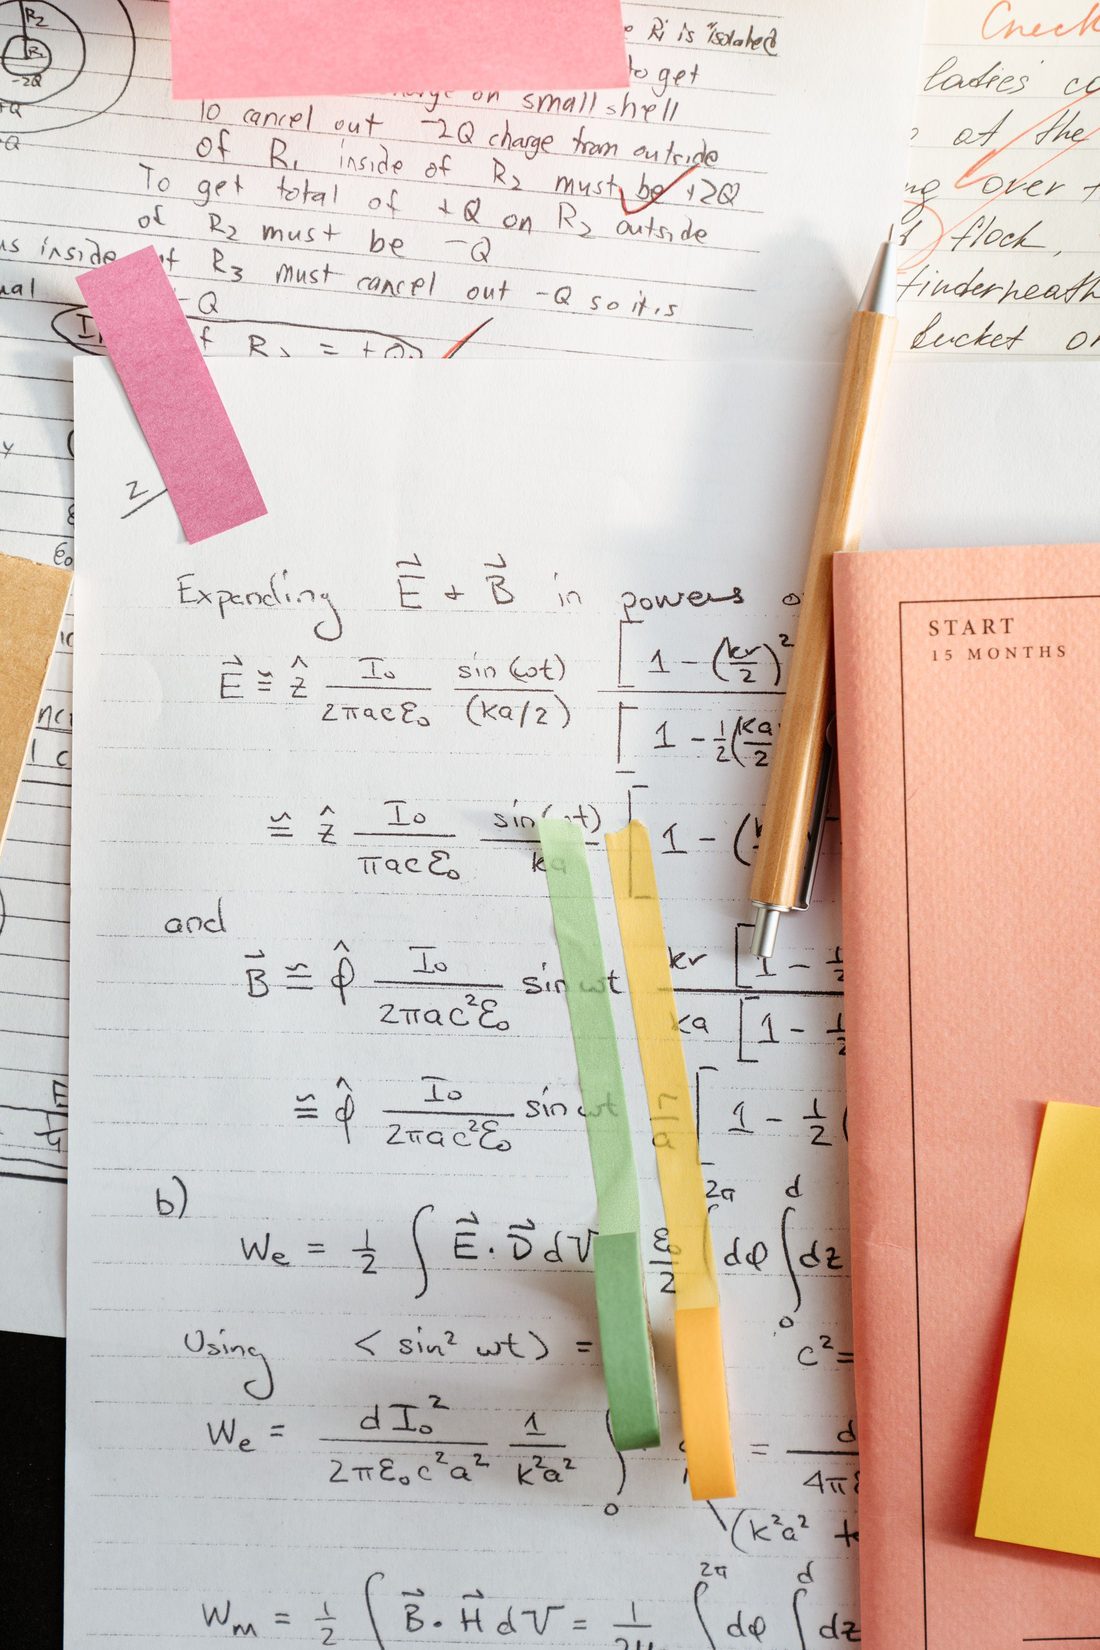 R₂
R₁
-2Q
+Q
-Q
R₁ is isolated
to get
charge on small shell
To cancel out -2Q charge from outside
of R₁ inside of R₂ must be +2Q
To get total of +Q on R₂ outside
of R₂ must be -Q
inside of R₃ must cancel out -Q so it is
-Q
of R₂ = +Q
Check
ladies'
at the
over
flock,
bucket
2
Expanding E⃗ + B⃗ in powers
E⃗ ≅ ẑ I₀/(2πacε₀) sin(ωt)/(ka/2) [1 - (kr/2)²
[1 - 1/2(ka/2
≅ ẑ I₀/(πacε₀) sin(ωt)/ka [1 - (
and
B⃗ ≅ φ̂ I₀/(2πac²ε₀) sin ωt kr [1 - 1/2
ka [1 - 1/2
≅ φ̂ I₀/(2πac²ε₀) sin ωt r/a [1 - 1/2 (
b)
We = 1/2 ∫ E⃗ · D⃗ dV ε₀/2 ∫ 2π dφ ∫₀ᵈ dz
Using < sin² ωt > = c² =
We = dI₀²/(2πε₀c²a²) 1/(k²a²) ∫₀ = d/4πε
(k²a²
Wm = 1/2 ∫ B⃗ · H⃗ dV = 1/2μ ∫ 2π dφ ∫ d dz
START
15 MONTHS